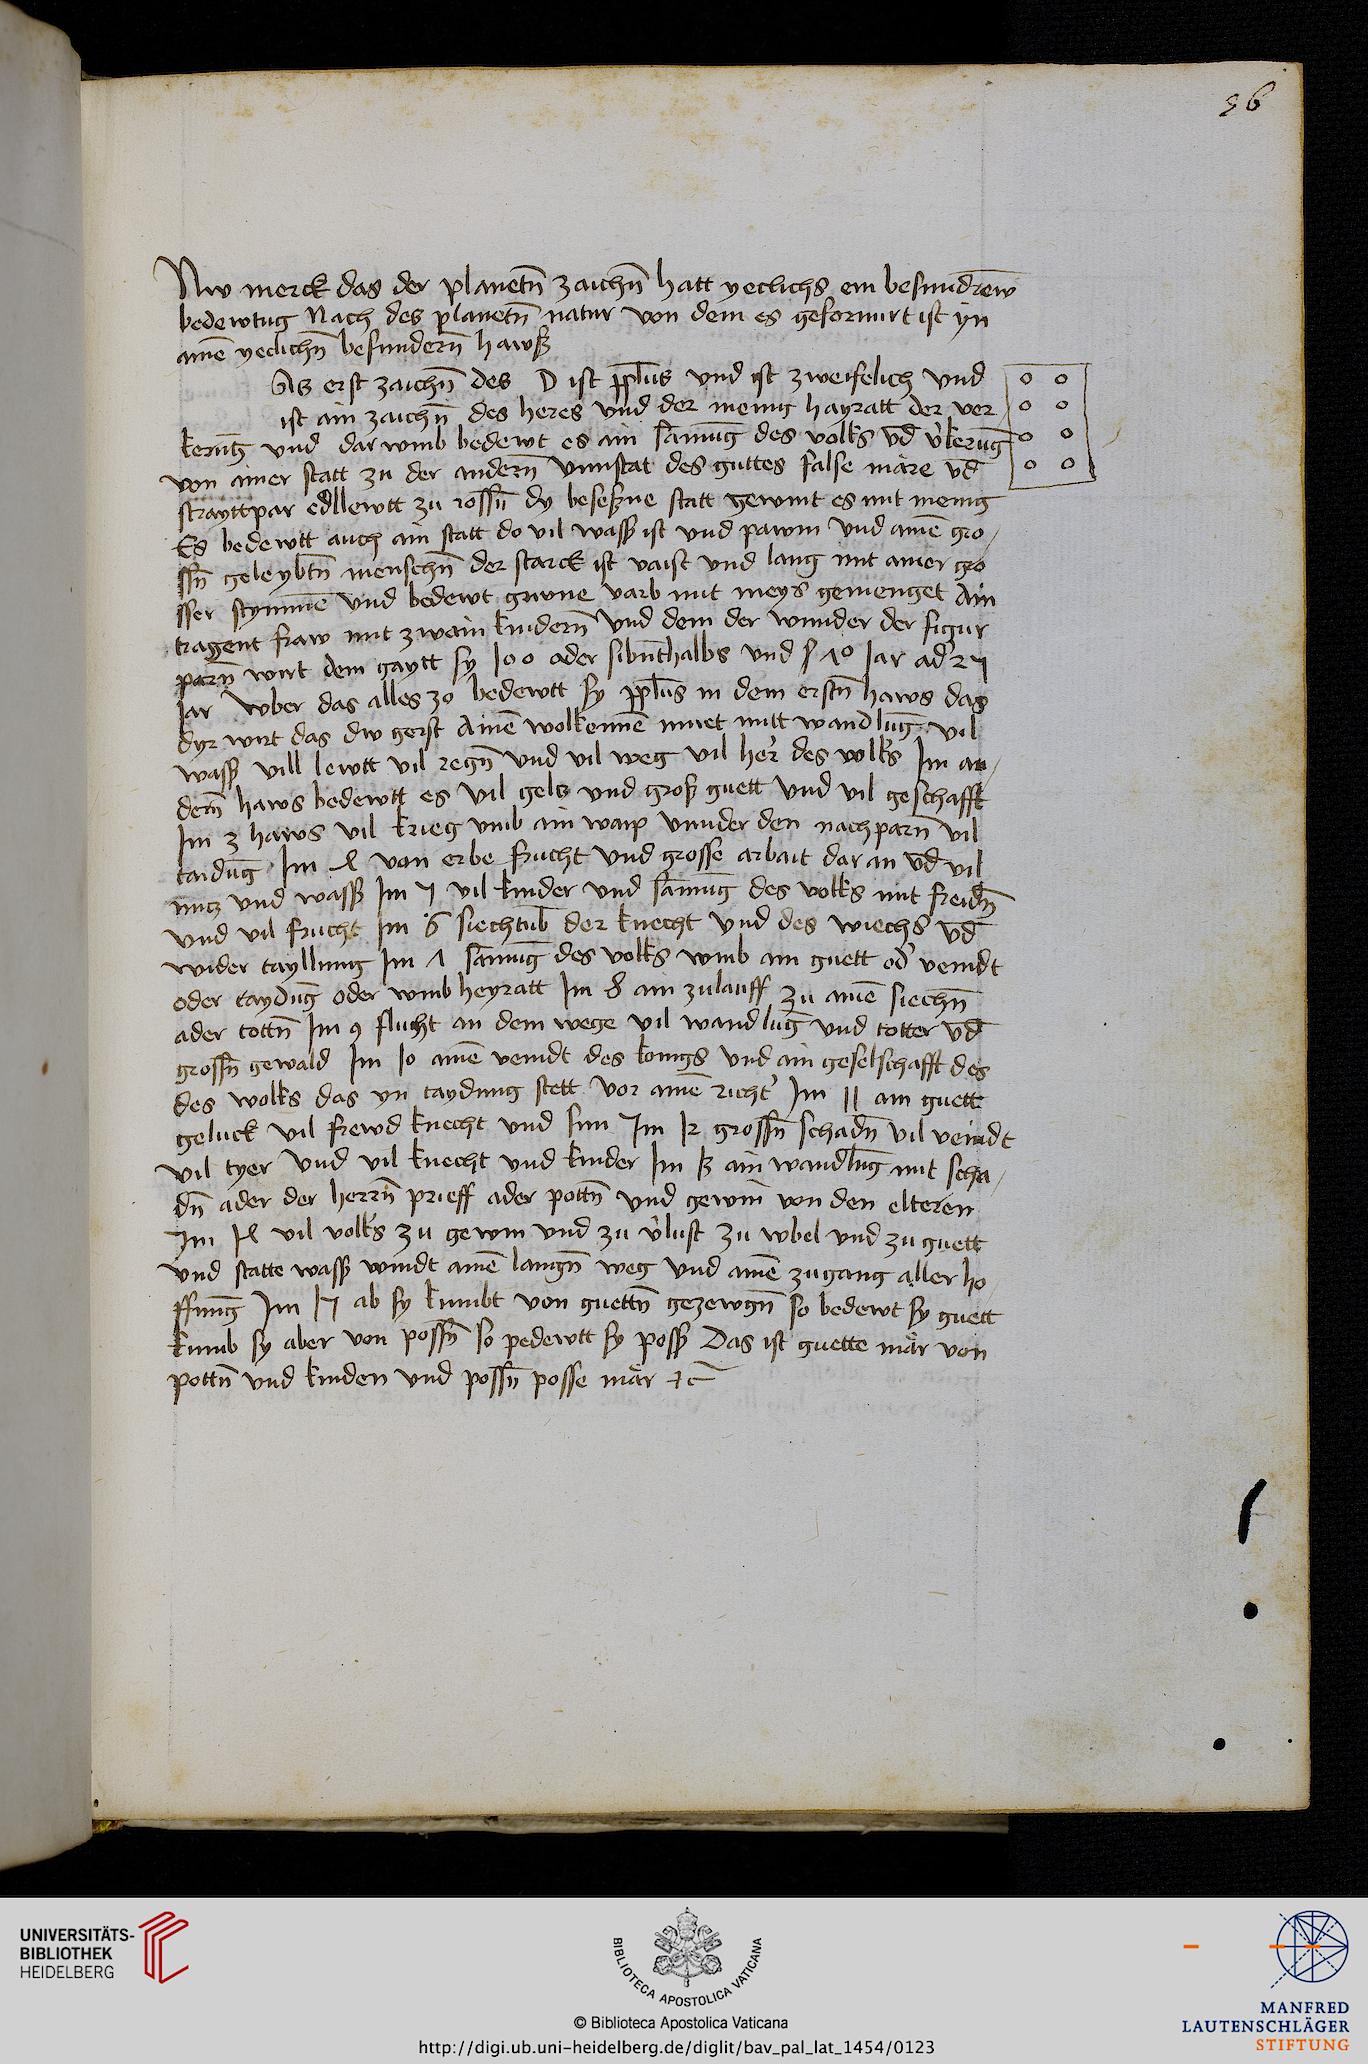 36
Nw merck das der planetn̄ zaichn̄ hatt yeclichs ein besundrew
bedewtug Nach des planetn̄ natur von dem es geformirt ist yn
ainē yeclichn̄ besundern̄ hawß
As erst zaichn̄ des D ist pplus und ist zweifelich und
ist ain zaichn̄ des heres und der menig hayratt der ver
kerung und dar wmb bedewt es ain samūg des volks vn̄d v̓kerūg
von ainer statt zu der andern̄ vnnstat des guttes false märe vn̄d
strayttpar edllewtt zu rossn̄ dy besesne statt gewint es mit menig
Es bedewtt auch ain statt do vil wass ist und pawm und ainē gro
ssn̄ geleybtn̄ menschn̄ der starck ist vaist und lang mit ainer gro
sser stymme und bedewt grvne varb mit weys gemenget Ain
tragent fraw mit zwain kindern̄ Und dem der wunder der figur
parn̄ wirt dem gaytt sy 100 oder sibn̄thalbs und Jar ad̓
Jar wber das alles zo bedewtt sy pplus in dem erstn̄ haws das
dyr wirt das dw gerst Ainē wolkennē muet mitt wandlūg vil
wass vill lewtt vil regn̄ und vil weg vil her̓ des volks Im an
dern̄ haws bedewtt es vil geltz und groß guett und vil geschafft
Im 3 haws vil krieg vmb ain waip vnnder den nachparn̄ vil
taidūg Im 4 von erbe frucht und grosse arbait dar an vn̄d vil
nutz und wass Im 5 vil kinder und samūg des volks mit freidn̄
und vil frucht Im 6 siechtūb der knecht und des wiechs vn̄d
wider tayllung Im 7 samūg des volks wmb ain guett od̓ veindt
oder taydūg oder wmb heyratt Im 8 ain zulauff zu ainē siechn̄
ader tottn̄ Im 9 flucht an dem wege vil wandlūg und totter vn̄d
grossn̄ gewald Im 10 ainē veindt des konigs und ain geselschafft des
des wolks das yn taydung stett vor ainē richt̓ Im 11 ain guett
geluck vil frewd knecht und sun Im 12 grossn̄ schadn̄ vil veindt
vil tyer und vil knecht und kinder Im 13 ain wandlūg mit scha
dn̄ ader der herrn̄ prieff ader pottn̄ und gewin von den elteren
Im 14 vil volks zu gewin und zu v̓lust zu wbel und zu guett
und statte wass windt ainē langn̄ weg und ainē zugang aller ho
ffnūg Im 15 ab sy kumbt von guettn̄ gezewgn̄ so bedewt sy guett
kumb sy aber von possn̄ so pedewtt sy poss Das ist guette mär von
pottn̄ und kinden und possn̄ posse mär ⁊c
UNIVERSITÄTS-
BIBLIOTHEK
HEIDELBERG
BIBLIOTECA APOSTOLICA VATICANA
© Biblioteca Apostolica Vaticana
http://digi.ub.uni-heidelberg.de/diglit/bav_pal_lat_1454/0123
MANFRED
LAUTENSCHLÄGER
STIFTUNG